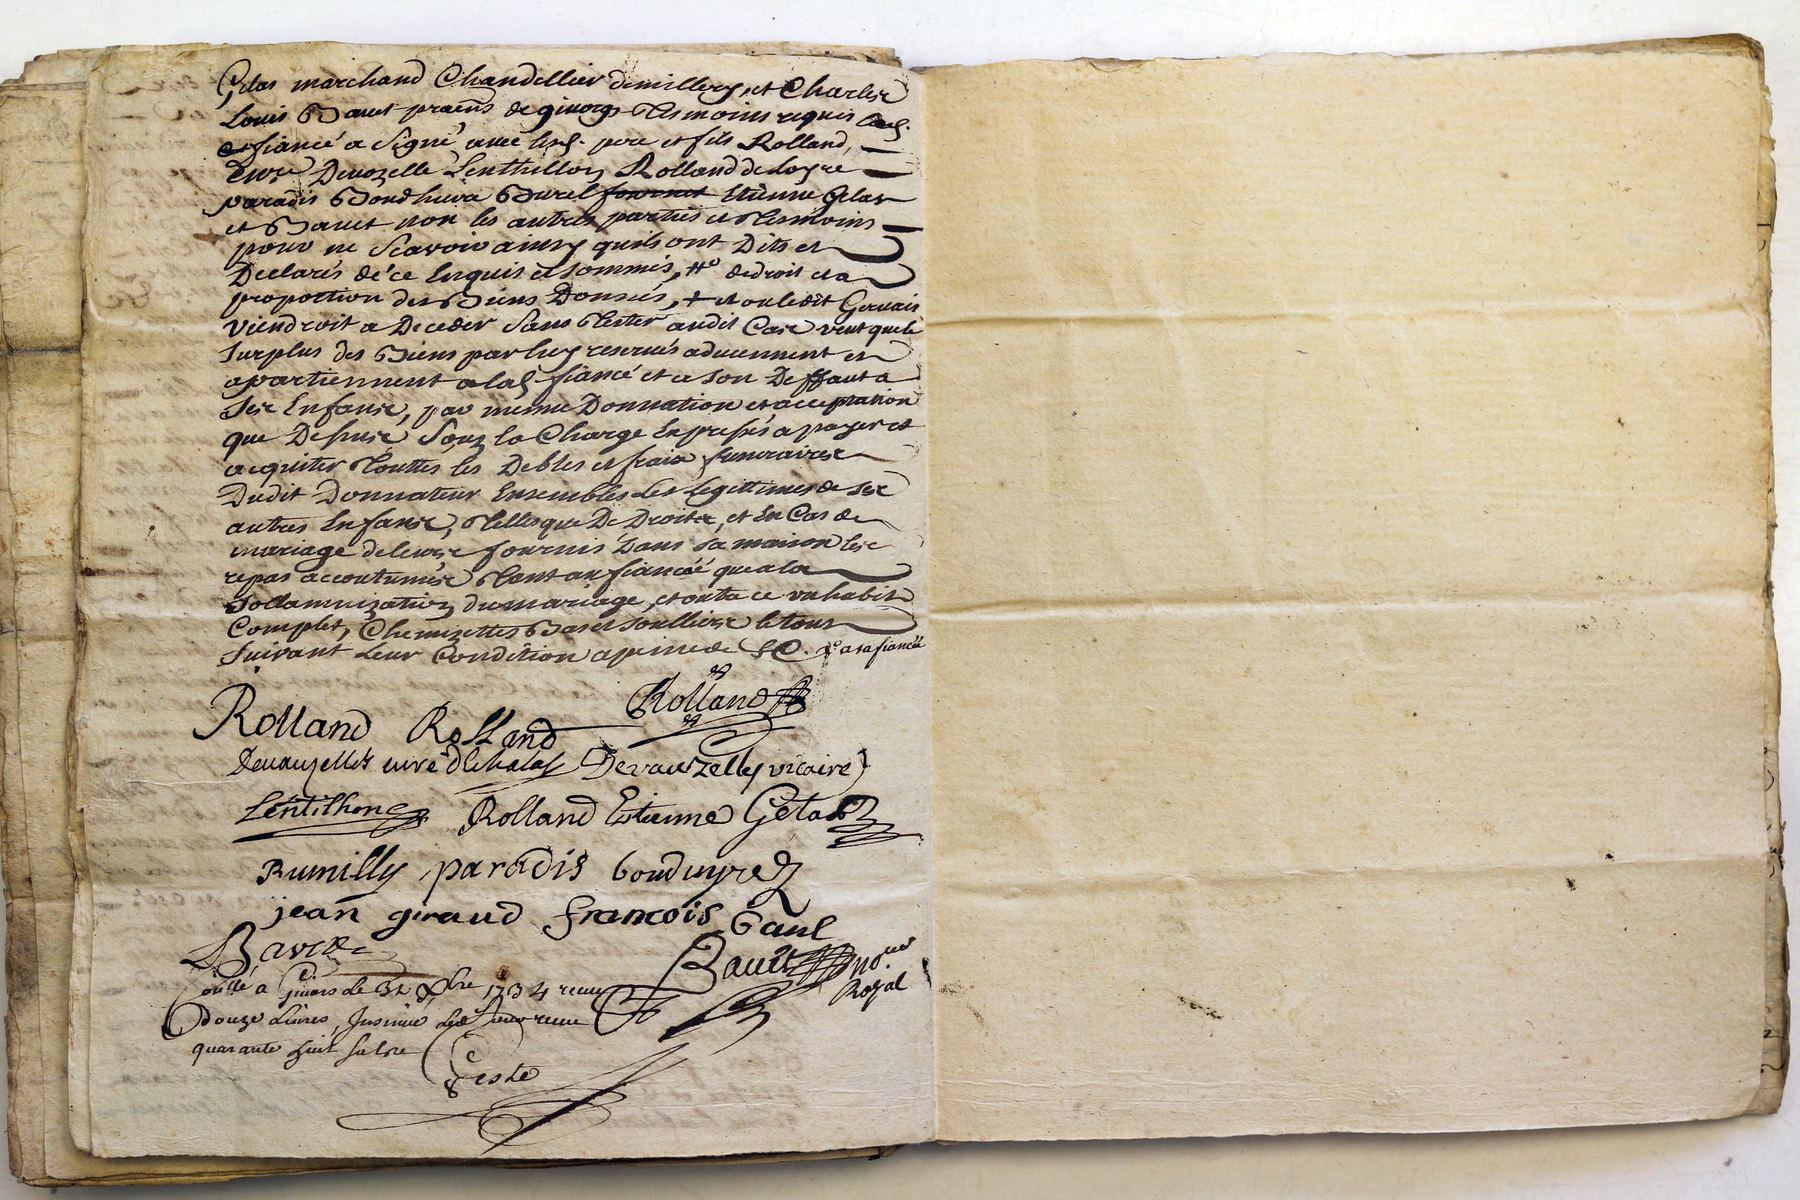 Gelas marchand Chandellier demillery, et Charles
Louis Bauet praēns de givors tesmoins requis Lad.
fiancé a Signé avec lesd. pere et fils Rolland,
Devozelle Lenthillon Rolland deLoyre
paradis Bondhuira Burel fournet Etienne Gelas
et Bauet non les autres parties et tesmoins
pour ne Scavoir ainsy quils ont Dits et
Declarés de ce Enquis et sommés, ttᵉ dedroit et a
proportion des Biens Donnés, + et ou ledit Gervais
viendroit a Deceder Sans tester audit Cas veut que le
Surplus des Biens par luy reservés aduiennent et
apartiennent a lad. fiancé et a son Deffaut a
Ses Enfans, par mesme Donnation et acceptation
que Dessus Souz la Charge Expresse a payer et
acquiter touttes les Debtes et frais funeraires
Dudit Donnateur Ensembles Les Legittimes de ses
autres Enfans, telles que De Droits, et En Cas de
mariage de leurs fournis Dans sa maison les
repas accoutumés tant au fiancé que a la
Sollamnization du mariage, et outre ce un habit
Complet, Chemizettes Bas et soulliers le tout
Suivant Leur Condition a peine de &C. a sa fiancée
Rolland Rolland Rolland
Devauzelles curé d'Echalas Devauzelles vicaire
Lentilhon Rolland Etienne Gelas
Rumilly paradis bonduyre
jean giraud francois baul
Bavet
Bauet no.re
Royal
Collé a Givors le 31 8bre 1734 receu
douze Livres, Insinué Led Jour receu
quarante huit
Geste